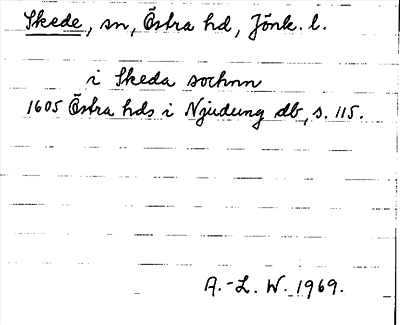 Skede, sn, Östra hd, Jönk. l.
i Skeda sochnn
1605 Östra hds i Njudung db, s. 115.
A.-L. W. 1969.